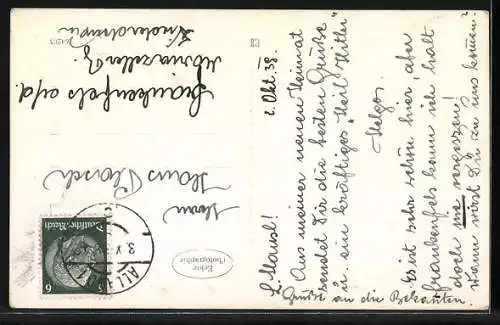 2. Okt. 38.
L. Mausl!
Aus meiner neuen Heimat
sendet Dir die besten Grüße
u. ein kräftiges „Heil Hitler"
Helga.
Es ist sehr schön hier aber
Frankenfels kann ich halt
doch nie vergessen!
Wann wirst Du zu uns kommen?
Grüße an die Bekannten.
Herrn
Hans
Frankenfels a/d.
Mariazeller B.
Niederdonau
Echte
Photographie
Deutsches Reich
6